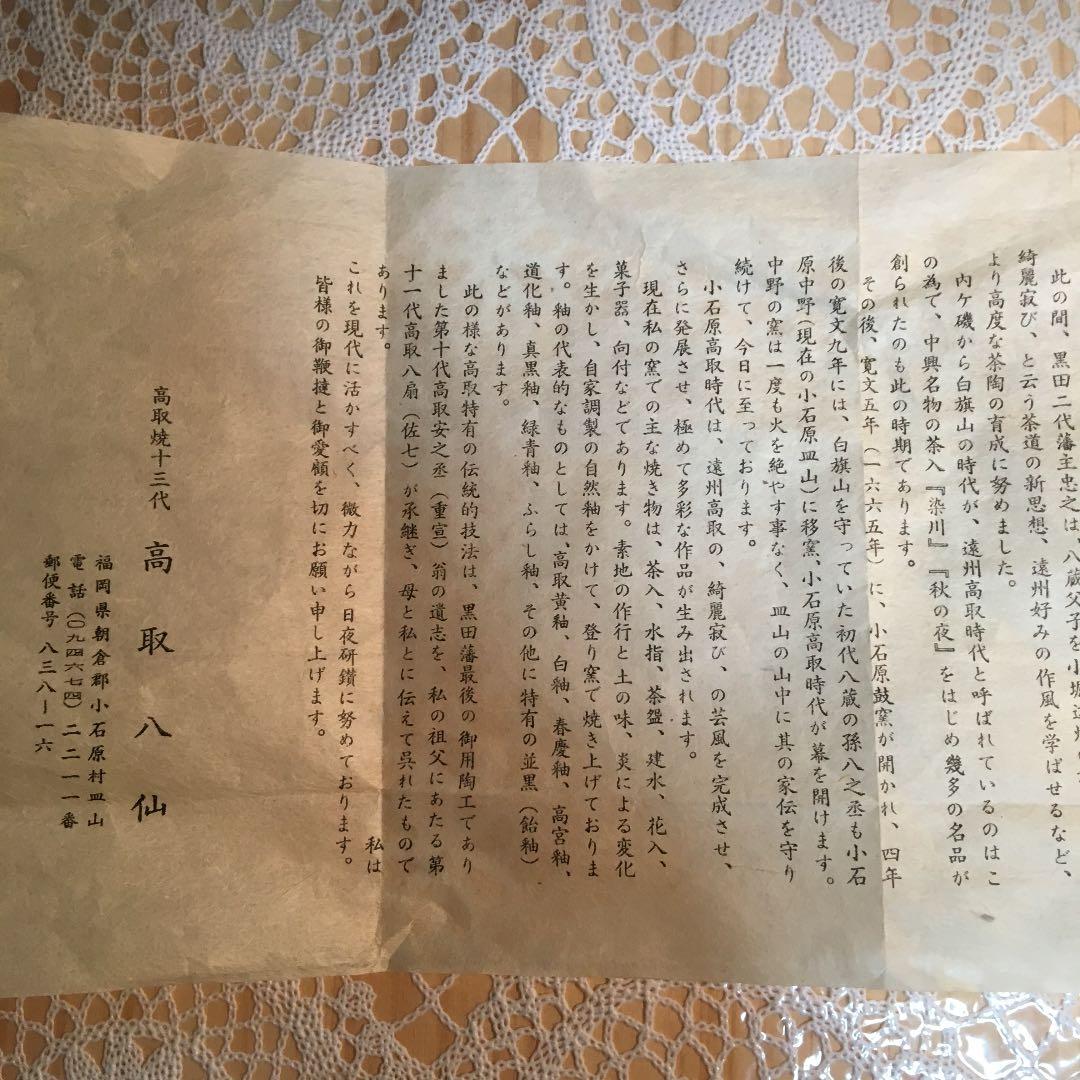 此の間、黒田二代藩主忠之は、八蔵父子を小堀遠州
綺麗寂び、と云う茶道の新思想、遠州好みの作風を学ばせるなど、
より高度な茶陶の育成に努めました。
内ケ磯から白旗山の時代が、遠州高取時代と呼ばれているのはこ
の為で、中興名物の茶入『染川』『秋の夜』をはじめ幾多の名品が
創られたのも此の時期であります。
その後、寛文五年（一六六五年）に、小石原鼓窯が開かれ、四年
後の寛文九年には、白旗山を守っていた初代八蔵の孫八之丞も小石
原中野（現在の小石原皿山）に移窯、小石原高取時代が幕を開けます。
中野の窯は一度も火を絶やす事なく、皿山の山中に其の家伝を守り
続けて、今日に至っております。
小石原高取時代は、遠州高取の、綺麗寂び、の芸風を完成させ、
さらに発展させ、極めて多彩な作品が生み出されます。
現在私の窯での主な焼き物は、茶入、水指、茶盌、建水、花入、
菓子器、向付などであります。素地の作行と土の味、炎による変化
を生かし、自家調製の自然釉をかけて、登り窯で焼き上げておりま
す。釉の代表的なものとしては、高取黄釉、白釉、春慶釉、高宮釉、
道化釉、真黒釉、緑青釉、ふらし釉、その他に特有の並黒（飴釉）
などがあります。
此の様な高取特有の伝統的技法は、黒田藩最後の御用陶工であり
ました第十代高取安之丞（重宣）翁の遺志を、私の祖父にあたる第
十一代高取八扇（佐七）が承継ぎ、母と私とに伝えて呉れたもので
あります。 私は
これを現代に活かすべく、微力ながら日夜研鑽に努めております。
皆様の御鞭撻と御愛顧を切にお願い申し上げます。
高取焼十三代 高取八仙
福岡県朝倉郡小石原村皿山
電話（〇九四六七四）二二一一番
郵便番号 八三八ー一六